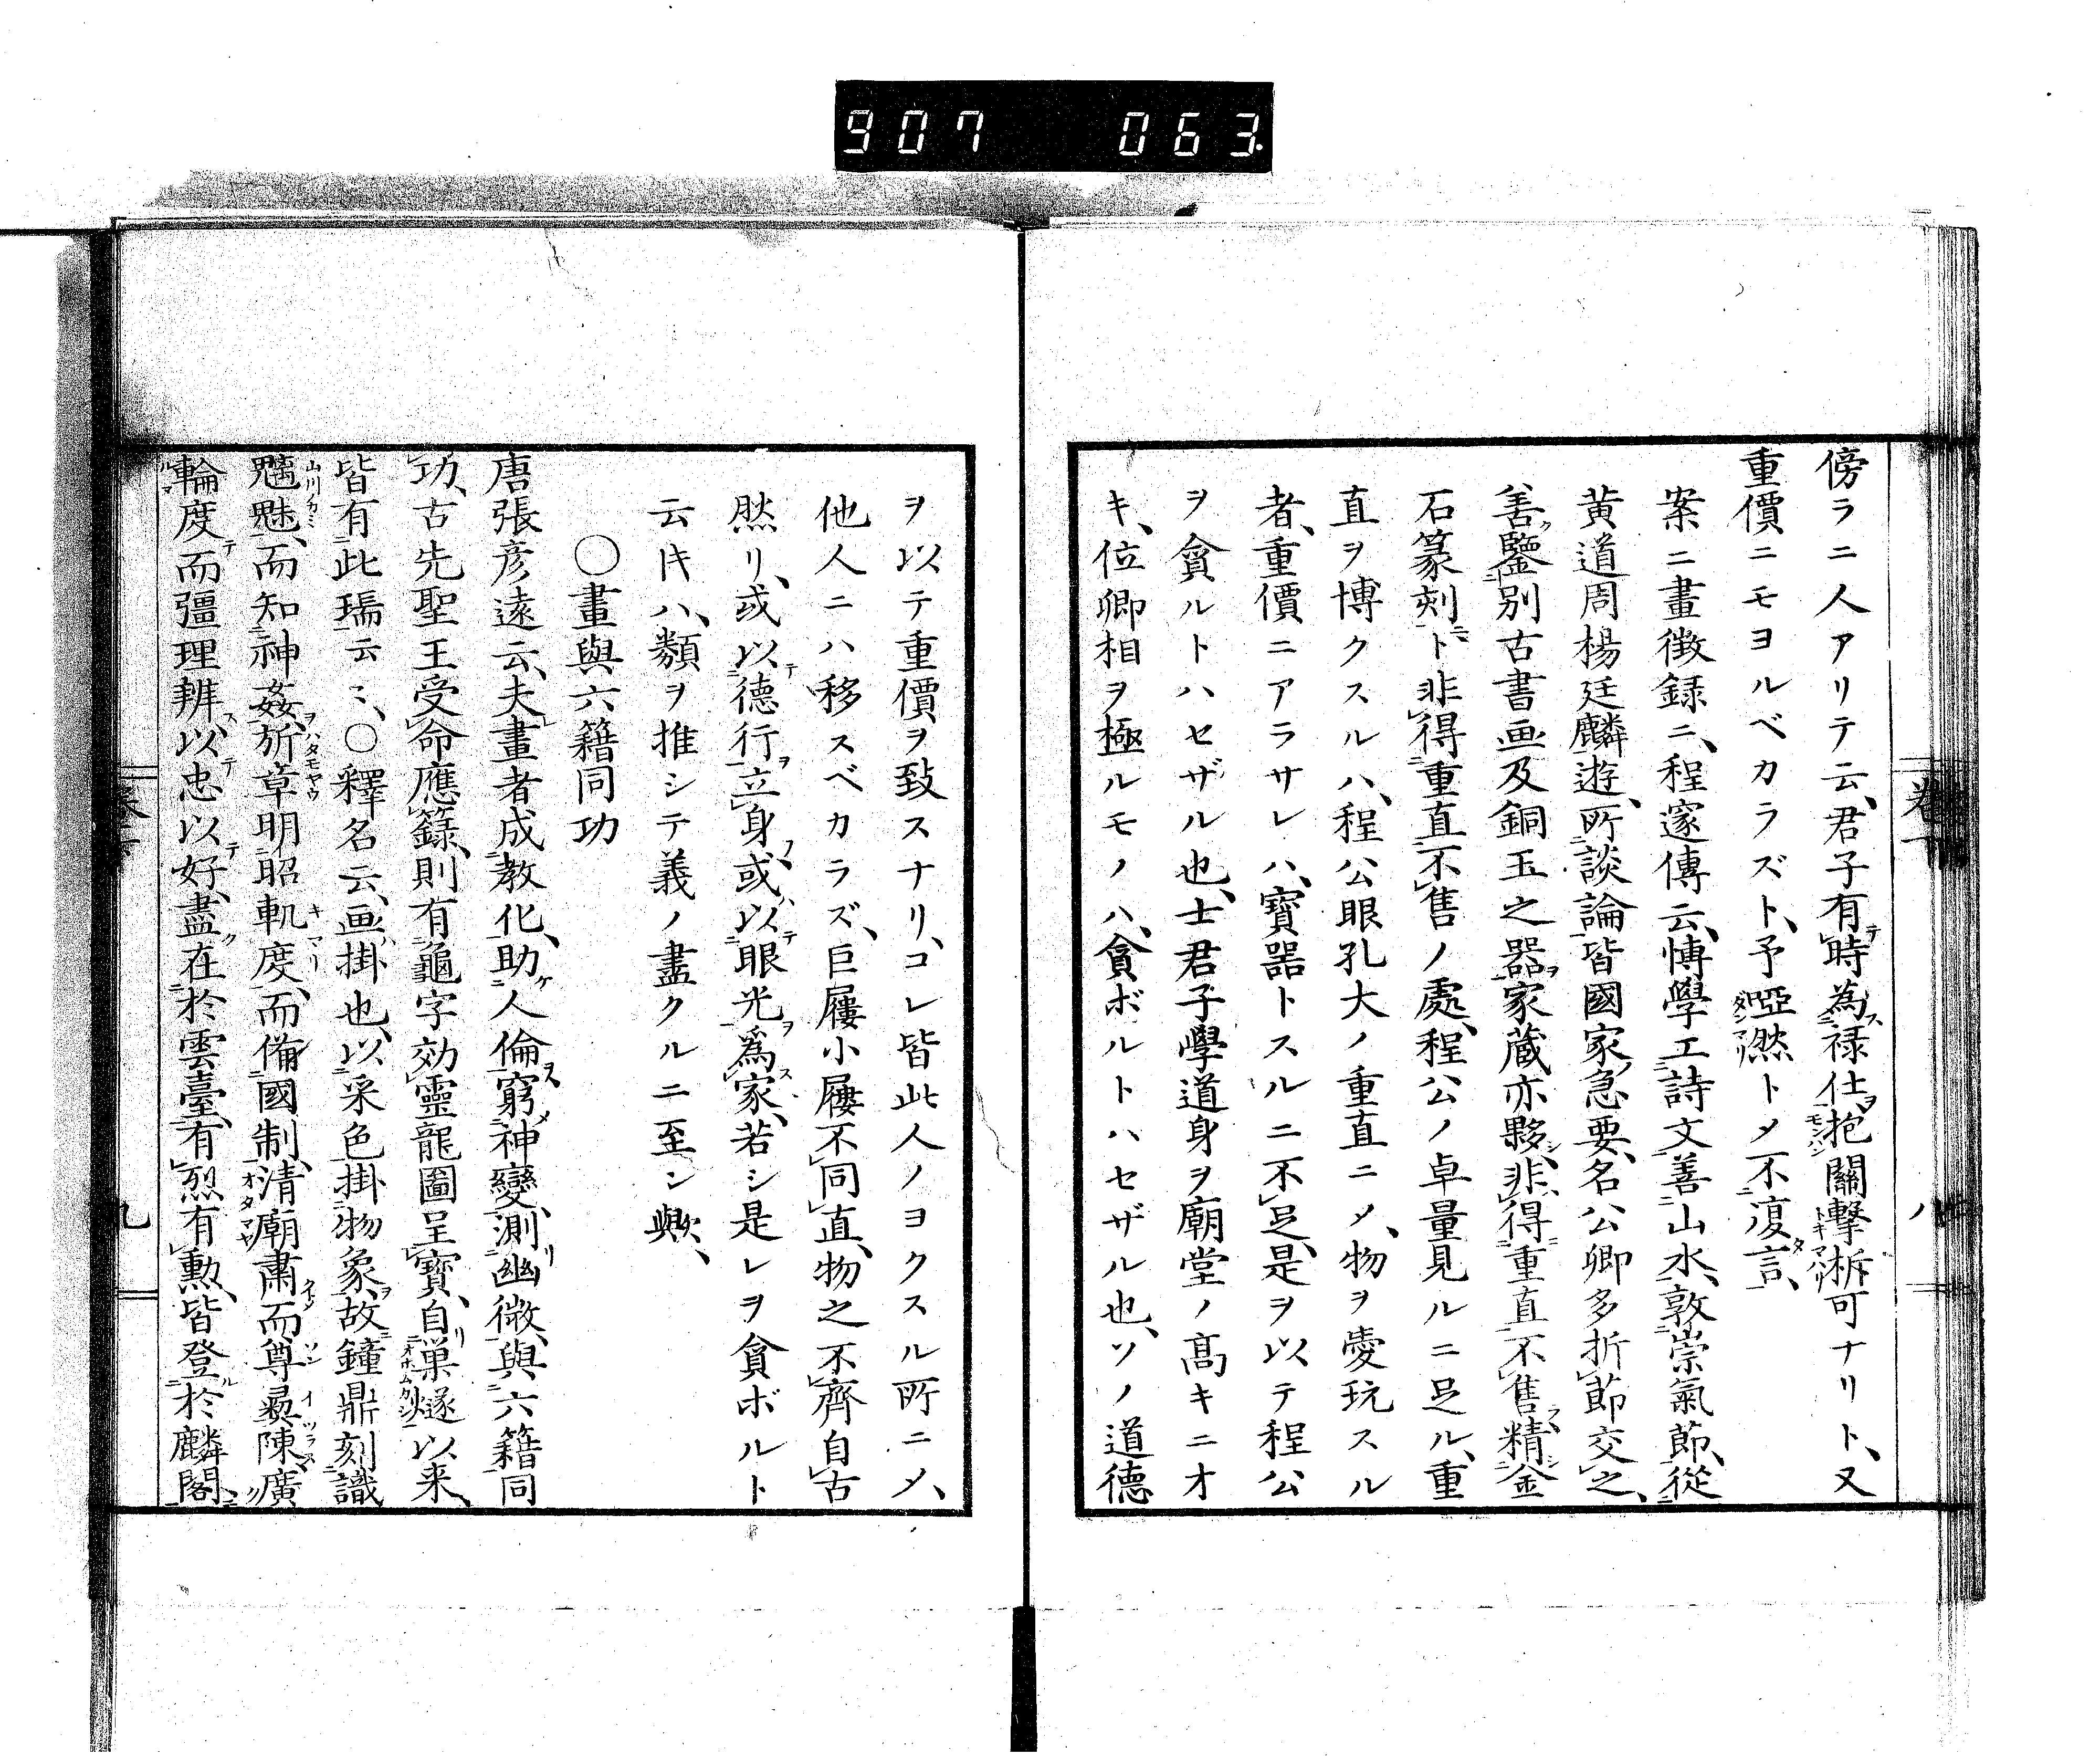 907 063
傍ラニ人アリテ云、君子有時為禄仕、抱關擊柝可ナリト、又
重價ニモヨルベカラズト、予啞然トメ不復言、
案ニ畫徴録ニ、程邃傳云、博學工詩文善山水、敦崇氣節、從
黄道周楊廷麟遊、所談論皆國家急要、名公卿多折節交之、
善鑒別古書画及銅玉之器、家蔵亦夥、非得重直不售、精金
石篆刻ト、非得重直不售ノ處、程公ノ卓量見ルニ足ル、重
直ヲ博クスルハ、程公眼孔大ノ重直ニメ、物ヲ愛玩スル
者、重價ニアラサレハ、寶器トスルニ不足、是ヲ以テ程公
ヲ貪ルトハセザル也、士君子學道身ヲ廟堂ノ髙キニオ
キ、位卿相ヲ極ルモノハ、貪ボルトハセザル也、ソノ道德
ヲ以テ重價ヲ致スナリ、コレ皆此人ノヨクスル所ニメ、
他人ニハ移スベカラズ、巨屨小屨不同直、物之不齊自古
然リ、或以德行立身、或以眼光為家、若シ是レヲ貪ボルト
云ドキハ、類ヲ推シテ義ノ盡クルニ至ン歟、
〇畫與六籍同功
唐張彦遠云、夫畫者成教化、助人倫、窮神變、測幽微、與六籍同
功、古先聖王受命應籙、則有龜字効靈龍圖呈寶、自巣燧以来、
皆有此瑞云々、〇釋名云、画掛也、以采色掛物象、故鐘鼎刻識
魑魅、而知神姦、旂章明昭軌度、而備國制、清廟肅而尊彝陳、廣
輪度而彊理辨、以忠以好、盡在於雲臺、有烈有勲、皆登於麟閣、
九